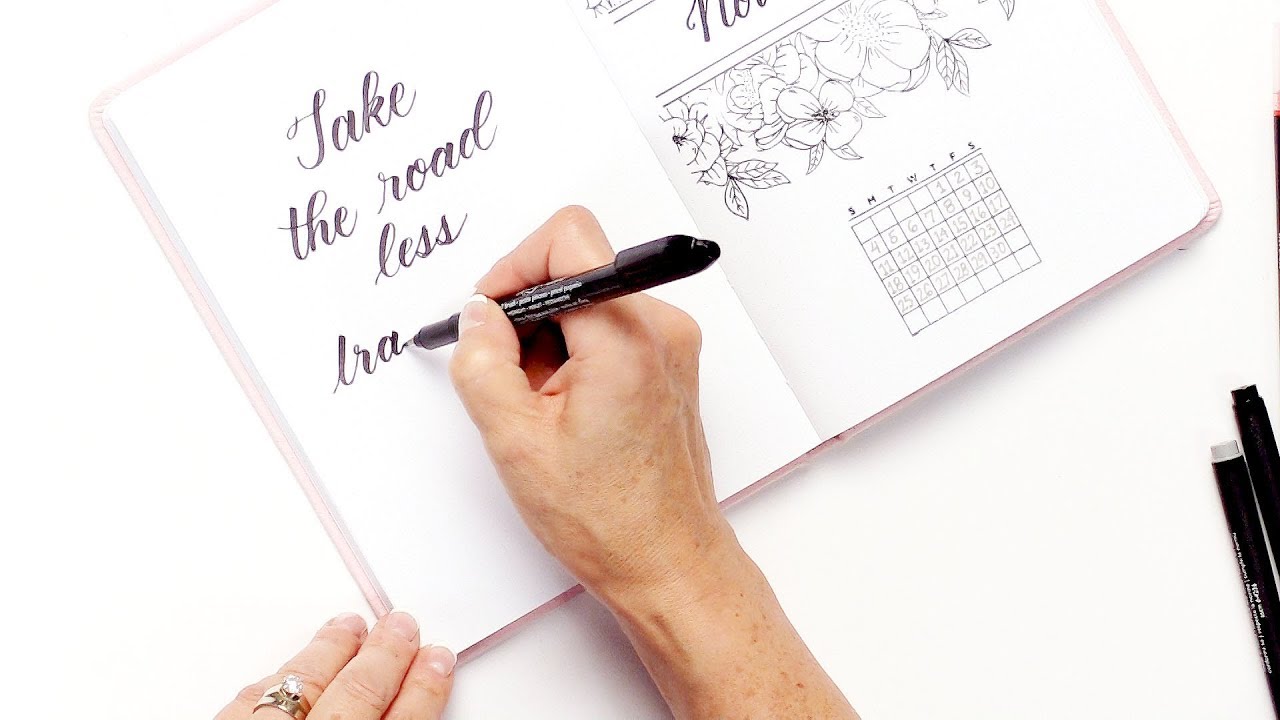 Take
the road
less
tra
Nov
S M T W T F S
1 2 3
4 5 6 7 8 9 10
11 12 13 14 15 16 17
18 19 20 21 22 23 24
25 26 27 28 29 30